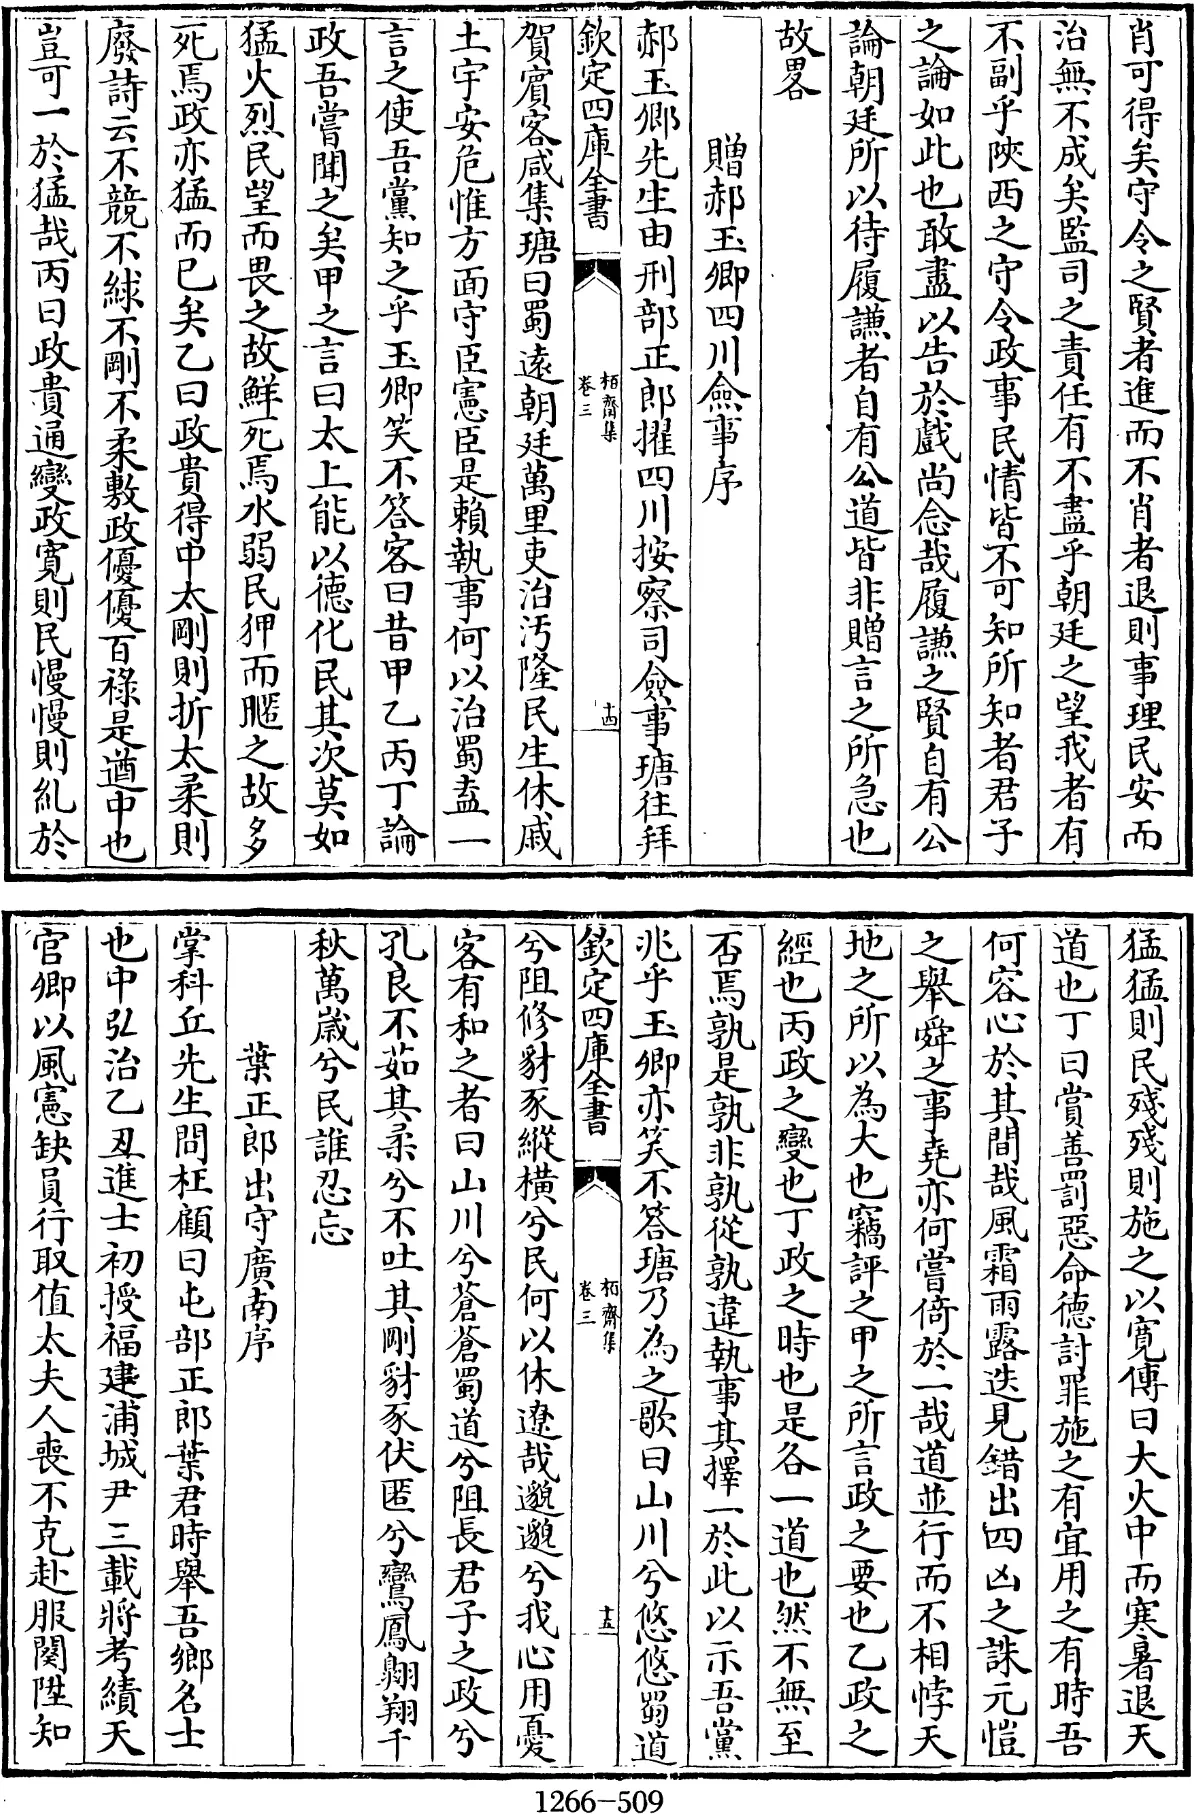 肖可得矣守令之賢者進而不肖者退則事理民安而
治無不成矣監司之責任有不盡乎朝廷之望我者有
不副乎陜西之守令政事民情皆不可知所知者君子
之論如此也敢盡以告於戲尚念哉履謙之賢自有公
論朝廷所以待履謙者自有公道皆非贈言之所急也
故畧
贈郝玉卿四川僉事序
郝玉卿先生由刑部正郎擢四川按察司僉事瑭往拜
欽定四庫全書
栢齋集
卷三
十四
賀賓客咸集瑭曰蜀遠朝廷萬里吏治汚隆民生休戚
土宇安危惟方面守臣憲臣是賴執事何以治蜀盍一
言之使吾黨知之乎玉卿笑不答客曰昔甲乙丙丁論
政吾嘗聞之矣甲之言曰太上能以德化民其次莫如
猛火烈民望而畏之故鮮死焉水弱民狎而翫之故多
死焉政亦猛而已矣乙曰政貴得中太剛則折太柔則
廢詩云不競不絿不剛不柔敷政優優百祿是遒中也
豈可一於猛哉丙曰政貴通變政寛則民慢慢則糺於
猛猛則民殘殘則施之以寛傳曰大火中而寒暑退天
道也丁曰賞善罰惡命德討罪施之有宜用之有時吾
何容心於其間哉風霜雨露迭見錯出四凶之誅元愷
之舉舜之事堯亦何嘗倚於一哉道並行而不相悖天
地之所以為大也竊評之甲之所言政之要也乙政之
經也丙政之變也丁政之時也是各一道也然不無至
否焉孰是孰非孰從孰違執事其擇一於此以示吾黨
兆乎玉卿亦笑不答瑭乃為之歌曰山川兮悠悠蜀道
欽定四庫全書
栢齋集
卷三
十五
兮阻修豺豕縱横兮民何以休遼哉邈邈兮我心用憂
客有和之者曰山川兮蒼蒼蜀道兮阻長君子之政兮
孔良不茹其柔兮不吐其剛豺豕伏匿兮鸞鳳翺翔千
秋萬歲兮民誰忍忘
葉正郎出守廣南序
掌科丘先生問枉顧曰屯部正郎葉君時舉吾鄉名士
也中弘治乙丑進士初授福建浦城尹三載將考績天
官卿以風憲缺員行取值太夫人喪不克赴服闋陞知
1266-509